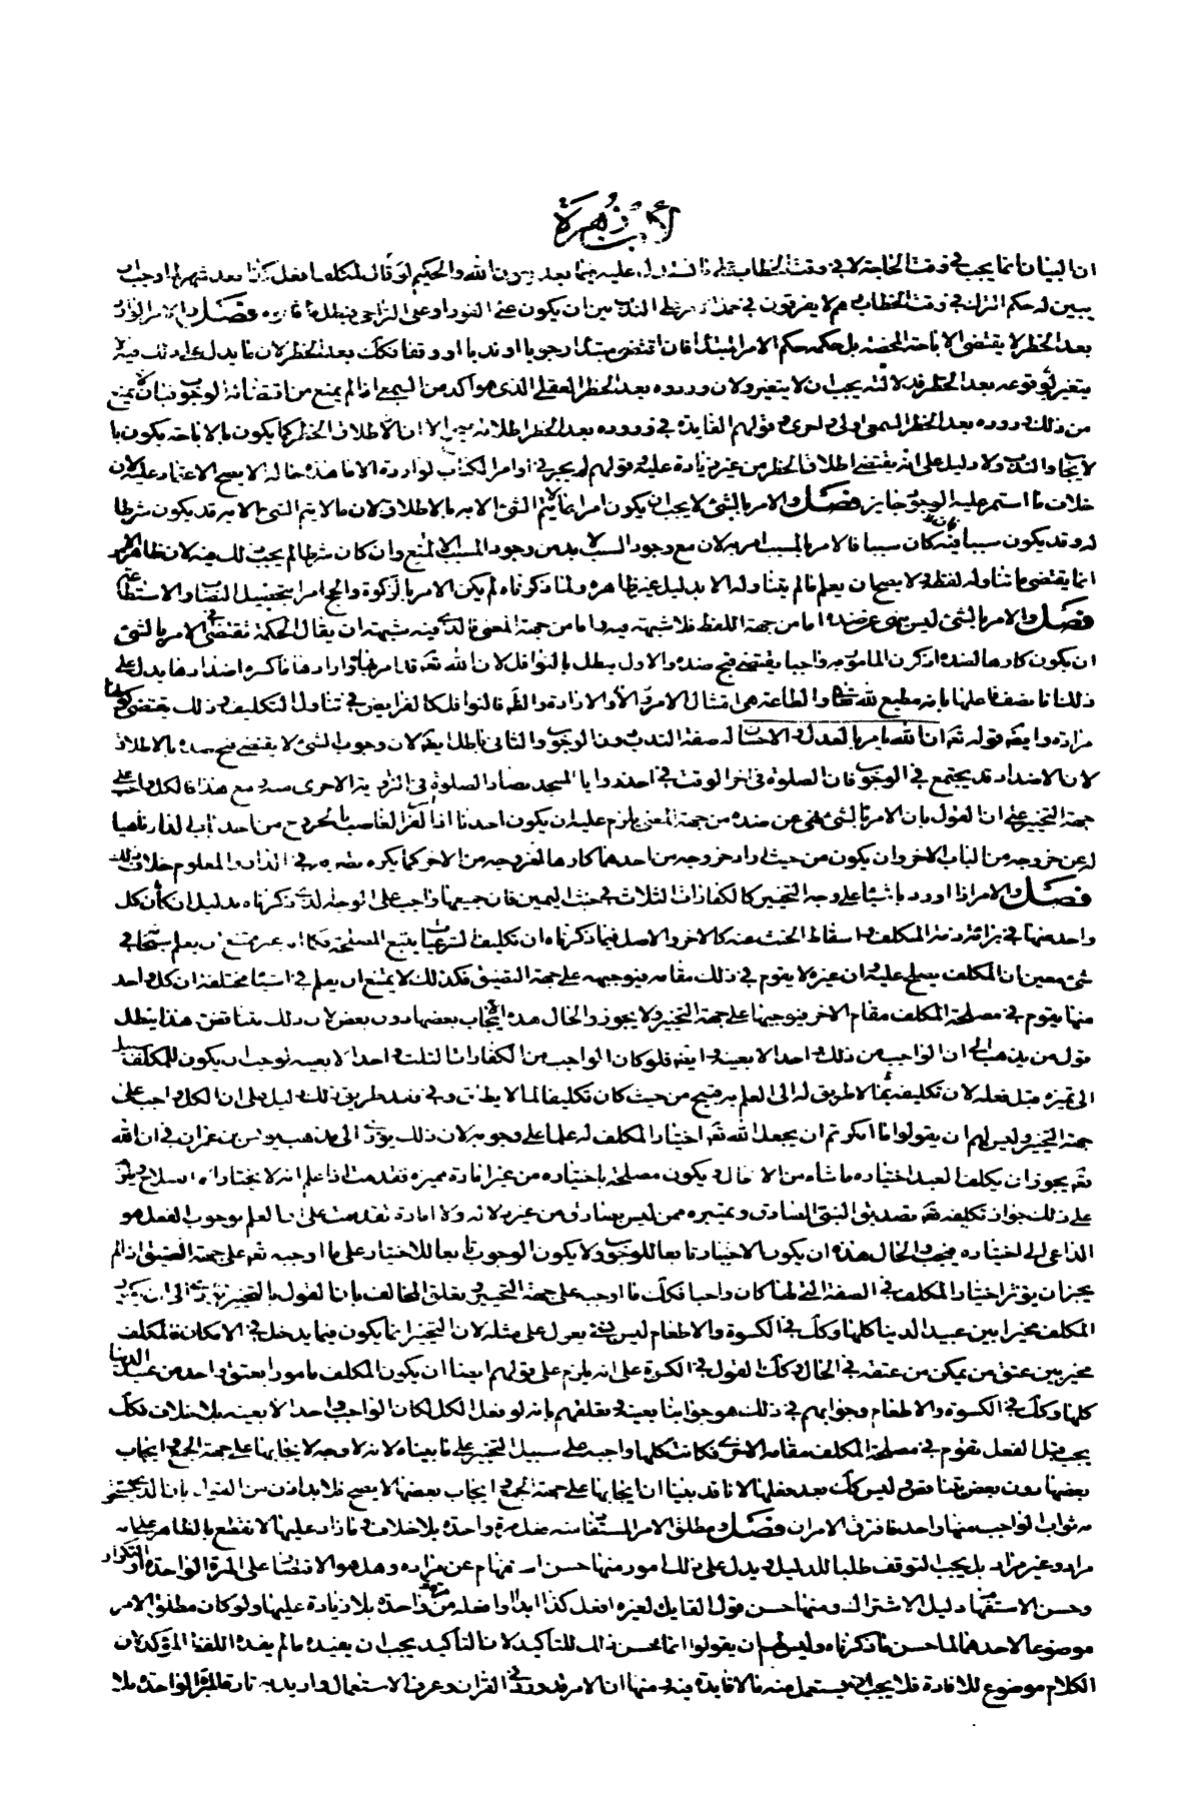 ابن زهرة
ان البيان انما يجب في وقت الحاجة لا في وقت الخطاب عليه فيما بعد الله والحكيم لو قال لمكلف افعل كذا بعد شهر اوجب ان
يبين له حكم الترك في وقت الخطاب هم لا يفرقون في بين ان يكون على الفور او على التراخي فبطل ما قالوه فصل الامر الوارد
بعد الحظر لا يقتضي الاباحة المحضة بل حكمه حكم الامر المبتدا فان اقتضى مبتدا وجوبا او ندبا او وقفا فكك بعد الحظر لان ما يدل على ذلك فيه لا
يتغير لوقوعه بعد الحظر فدلالته يجب ان لا يتغير ولان وروده بعد الحظر العقلي الذي هو اكد من السمعي اذا لم يمنع من اقتضائه الوجوب فبان لا يمنع
من ذلك وروده بعد الحظر السمعي اولى واحرى وقولهم الفايدة في وروده بعد الحظر اطلاقه لان الاطلاق الحظر كما يكون بالاباحة يكون با
لايجاب والندب ولا دليل على انه يقتضي اطلاق الحظر من غير زيادة عليه وقولهم لم يجر في اوامر الكتاب الواردة الا ما هذه حاله لا يصح الاعتماد عليه لان
خلاف ما استمر عليه الوجود جايز فصل والامر بالشئ لا يجب ان يكون امرا بما لا يتم الشئ الا به بالاطلاق لان ما لا يتم الشئ الا به قد يكون شرطا
له وقد يكون سببا فيه فان كان سببا فالامر بالمسبب امر به لان مع وجود السبب لا بد من وجود المسبب الا لمنع وان كان شرطا لم يجب ذلك فيه لان ظاهر الامر
انما يقتضي ما تناوله لفظه ولا يصح ان يعلم ما لم يتناوله الا بدليل غير ظاهره ولما ذكرناه لم يكن الامر بالزكوة والحج امرا بتحصيل النصاب والاستطاعة
فصل والامر بالشئ ليس بنهي عن ضده اما من جهة اللفظ فلا شبهة فيه واما من جهة المعنى فالذي فيه شبهة ان يقال الحكمة تقتضي في الامر بالشئ
ان يكون كارها لضده او كون المامور به واجبا يقتضي قبح ضده والاول يبطل بالنوافل لان الله تعه قد امر بها وارادها وما كره اضدادها يدل على
ذلك انا نصف فاعلها بانه مطيع لله تعه والطاعة هي امتثال الامر او الارادة وايضا فالنوافل كالفرايض في تناول التكليف وذلك يقتضي كونها
مرادة وايضه قوله تعه ان الله يامر بالعدل والاحسان له صفة الندب دون الوجوب والثاني باطل ايضه لان وجوب الشئ لا يقتضي قبح ضده بالاطلاق
لان الاضداد قد يجتمع في الوجوب فان الصلوة في اخر الوقت في احد زوايا المسجد يضاد الصلوة في الزاوية الاخرى منه مع هذا فالكل واجب على
جهة التخيير على ان القول بان الامر بالشئ نهي عن ضده من جهة المعنى يلزم عليه ان يكون احدنا اذا امر الغاصب بالخروج من احد بابي الدار ناهيا
له عن خروجه من الباب الاخر وان يكون من حيث اراد خروجه من احدهما كارها لخروجه من الاخر كما يكره تصرفه في الدار والمعلوم خلاف ذلك
فصل والامر اذا ورد باشياء على وجه التخيير كالكفارات الثلاث في حنث اليمين فان جميعها واجب على الوجه الذي ذكرناه بدليل انه كان كل
واحد منها في برائة ذمة المكلف واسقاط الحنث عنه كالاخر والاصل فيما ذكرناه ان تكليف الشرعيات يتبع المصلحة فكما انه غير ممتنع ان يعلم سبحانه في
شئ معين ان المكلف يصلح عليه وان غيره لا يقوم في ذلك مقامه فيوجبه على جهة التضييق فكذلك لا يمتنع ان يعلم في اشياء مختلفة ان كل واحد
منها يقوم في مصلحة المكلف مقام الاخر فيوجبها على جهة التخيير ولا يجوز والحال هذه ايجاب بعضها دون بعض لان ذلك يتناقض هذا يبطل
قول من يذهب الى ان الواجب من ذلك واحد لا بعينه وايضه فلو كان الواجب من الكفارات الثلث واحدا لا بعينه لوجب ان يكون للمكلف سبيل
الى تميزه قبل فعله لان تكليفه بما لا طريق له الى العلم به قبيح من حيث كان تكليفا لما لا يطاق وفي فقد طريق ذلك دليل على ان الكل واجب على
جهة التخيير وليس لهم ان يقولوا ما انكرتم ان يجعل الله تعه اختيار المكلف له علما على وجوبه لان ذلك يؤدي الى مذهب يونس بن عمران في ان الله
تعه يجوز ان يكلف العبد اختياره ما شاء من الافعال ويكون مصلحة باختياره من غير امارة مميزة تقدمت اذا علم انه لا يختار الا الصلاح
على ذلك جواز تكليفه تعه تصديق النبي الصادق وتمييزه ممن ليس بصادق من غير دلالة ولا امارة تقدمت على ان العلم بوجوب الفعل هو
الداعي الى اختياره فيجب والحال هذه ان يكون الاختيار تابعا للوجوب ولا يكون الوجوب تابعا للاختيار على ما اوجبه تعه على جهة التضييق اذا لم
يجز ان يؤثر اختيار المكلف في الصفة التي لها كان واجبا فكك ما اوجب على جهة التخيير وتعلق المخالف بان القول بالتخيير يؤدي الى ان يكون
المكلف مخيرا بين عبيد الدنيا كلها وكك في الكسوة والاطعام ليس بشئ يعول على مثله لان التخيير انما يكون فيما يدخل في الامكان فالمكلف
مخير بين عتق من يمكن من عتقه في الحال وكك القول في الكسوة على انه يلزم على قولهم ايضا ان يكون المكلف مامورا بعتق واحد من عبيد الدنيا
كلها وكك في الكسوة والاطعام وجوابهم في ذلك هو جوابنا بعينه وتعلقهم بانه لو فعل الكل لكان الواجب واحدا لا بعينه بلا خلاف فكك
يجب قبل الفعل تقوم في مصلحة المكلف مقامه الاخرى فكانت كلها واجبة على سبيل التخيير على ما بيناه لانه لا وجه لايجابها على جهة الجمع وايجاب
بعضها دون بعض يتناقض وليس كك بعد فعلها لانا قد بينا ان ايجابها على جهة الجمع او ايجاب بعضها لا يصح فلا بد اذن من القول بان الذي يستحق
به ثواب الواجب منها واحد فافترق الامران فصل ومطلق الامر المستفاد منه فعل مرة واحدة بلا خلاف وما زاد عليها لا نقطع بالظاهر على انه
مراد وغير مراد بل يجب التوقف طلبا للدليل ويدل على ذلك امور منها حسن استفهام عن مراده وهل هو الاقتصار على المرة الواحدة او التكرار
وحسن الاستفهام دليل الاشتراك ومنها حسن قول القايل لغيره افعل كذا ابدا وافعله مرة واحدة بلا زيادة عليها ولو كان مطلق الامر
موضوعا لاحدهما لما حسن ما ذكرناه وليس لهم ان يقولوا انما يحسن ذلك للتأكيد لان التأكيد يجب ان يفيد ما لم يفده اللفظ المؤكد لان
الكلام موضوع للافادة فلا يجب ان يستعمل منه ما لا فايدة فيه ومنها ان الامر قد ورد في القران وعرف الاستعمال واريد به تارة المرة الواحدة بلا